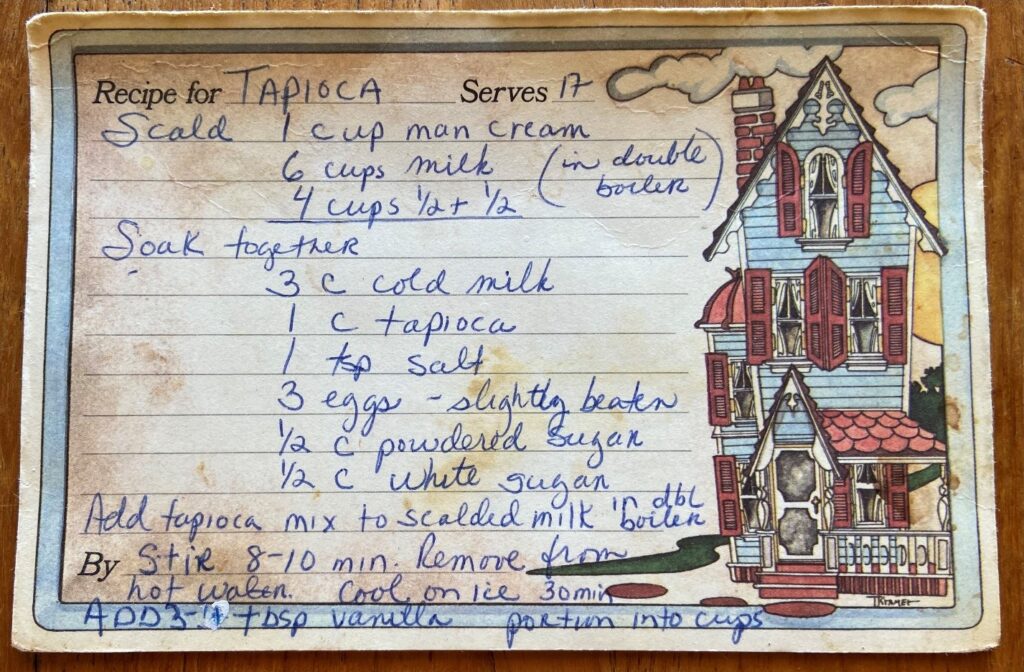 Recipe for TAPIOCA Serves 17
Scald 1 cup man cream
6 cups milk (in double boiler)
4 cups 1/2 + 1/2
Soak together
3 c cold milk
1 c tapioca
1 tsp salt
3 eggs - slightly beaten
1/2 c powdered sugar
1/2 c white sugar
Add tapioca mix to scalded milk in dbl boiler
By Stir 8-10 min. Remove from
hot water. Cool on ice 30min
ADD 3- tbsp vanilla portion into cups